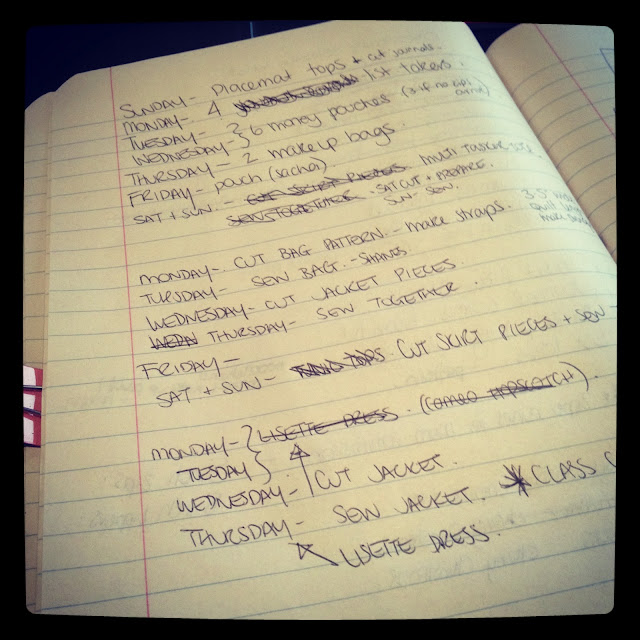 SUNDAY- Placemat tops + cut journals.
MONDAY- 4 list takers.
TUESDAY- }
WEDNESDAY- } 6 money pouches (3 if no
THURSDAY- 2 makeup bags.
FRIDAY- pouch (sacha)
SAT + SUN - CUT SKIRT PIECES MULTI TASKER
SEW TOGETHER - SAT CUT + PREPARE.
SUN - SEW.
MONDAY- CUT BAG PATTERN - make straps.
TUESDAY- SEW BAG.- SHANDS
WEDNESDAY- CUT JACKET PIECES.
WEDN THURSDAY- SEW TOGETHER.
FRIDAY-
SAT + SUN- TOPS. CUT SKIRT PIECES + SEW -
MONDAY- } LISETTE DRESS. (COMBO HOPSCOTCH).
TUESDAY }
WEDNESDAY- CUT JACKET.
THURSDAY- SEW JACKET. CLASS
LISETTE DRESS.